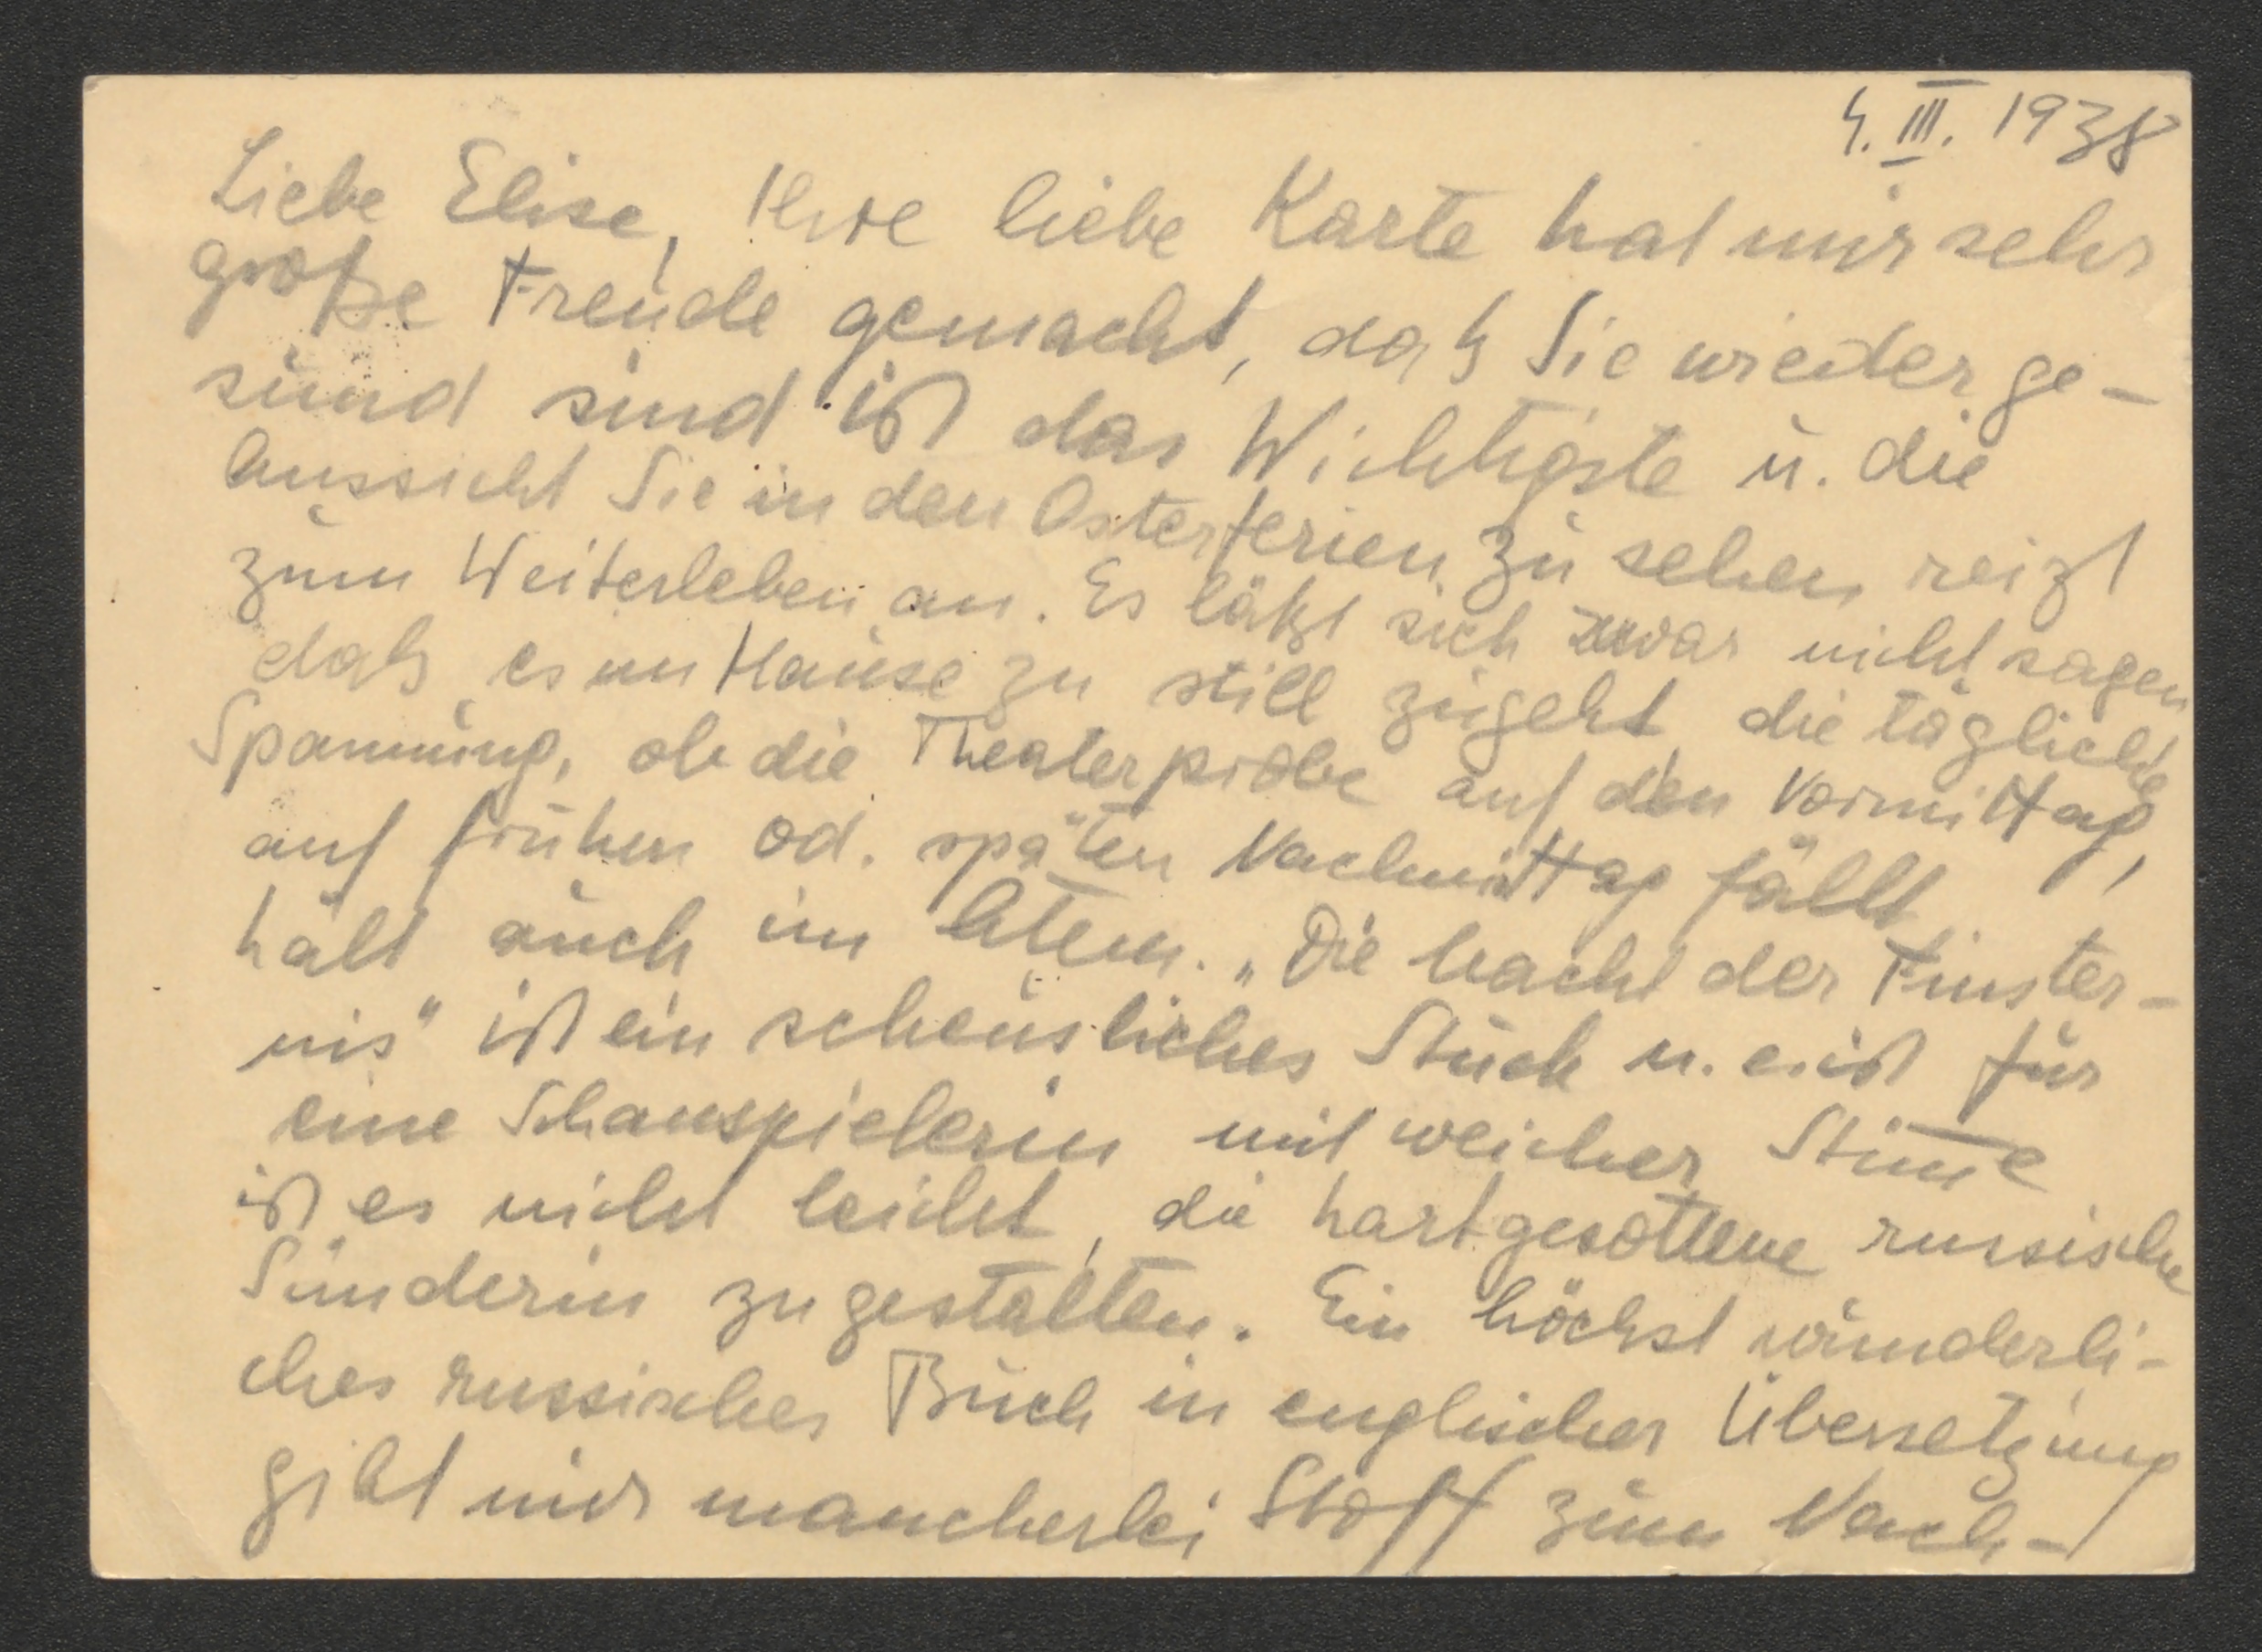 4. III. 1938
Liebe Elise, Ihre liebe Karte hat mir sehr
große Freude gemacht, daß Sie wieder ge-
sund sind ist das Wichtigste u. die
Aussicht Sie in den Osterferien zu sehen reizt
zum Weiterleben an. Es läßt sich zwar nicht sagen
daß es im Hause zu still zugeht, die tägliche
Spannung, ob die Theaterprobe auf den Vormittag,
auf frühen od. späten Nachmittag fällt
hält auch im Atem. „Die Macht der Finster-
nis" ist ein scheusliches Stück u. es ist für
eine Schauspielerin mit weicher Stim̅e
ist es nicht leicht, die hartgesottene russische
Sünderin zu gestalten. Ein höchst wunderli-
ches russisches Buch in englischer Übersetzung
gibt mir mancherlei Stoff zum Nach-